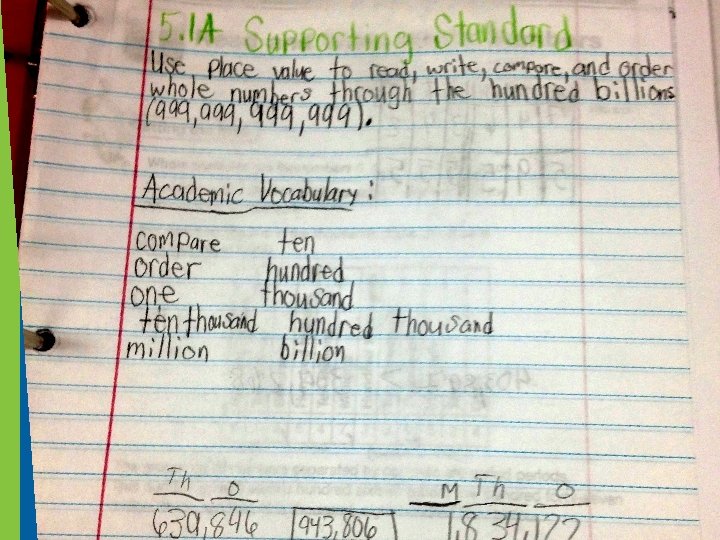 5.1A Supporting Standard
Use place value to read, write, compare, and order
whole numbers through the hundred billions
(999,999,999,999).
Academic Vocabulary:
compare ten
order hundred
one thousand
ten thousand hundred thousand
million billion
Th O M Th O
639,846 943,806 1,834,177